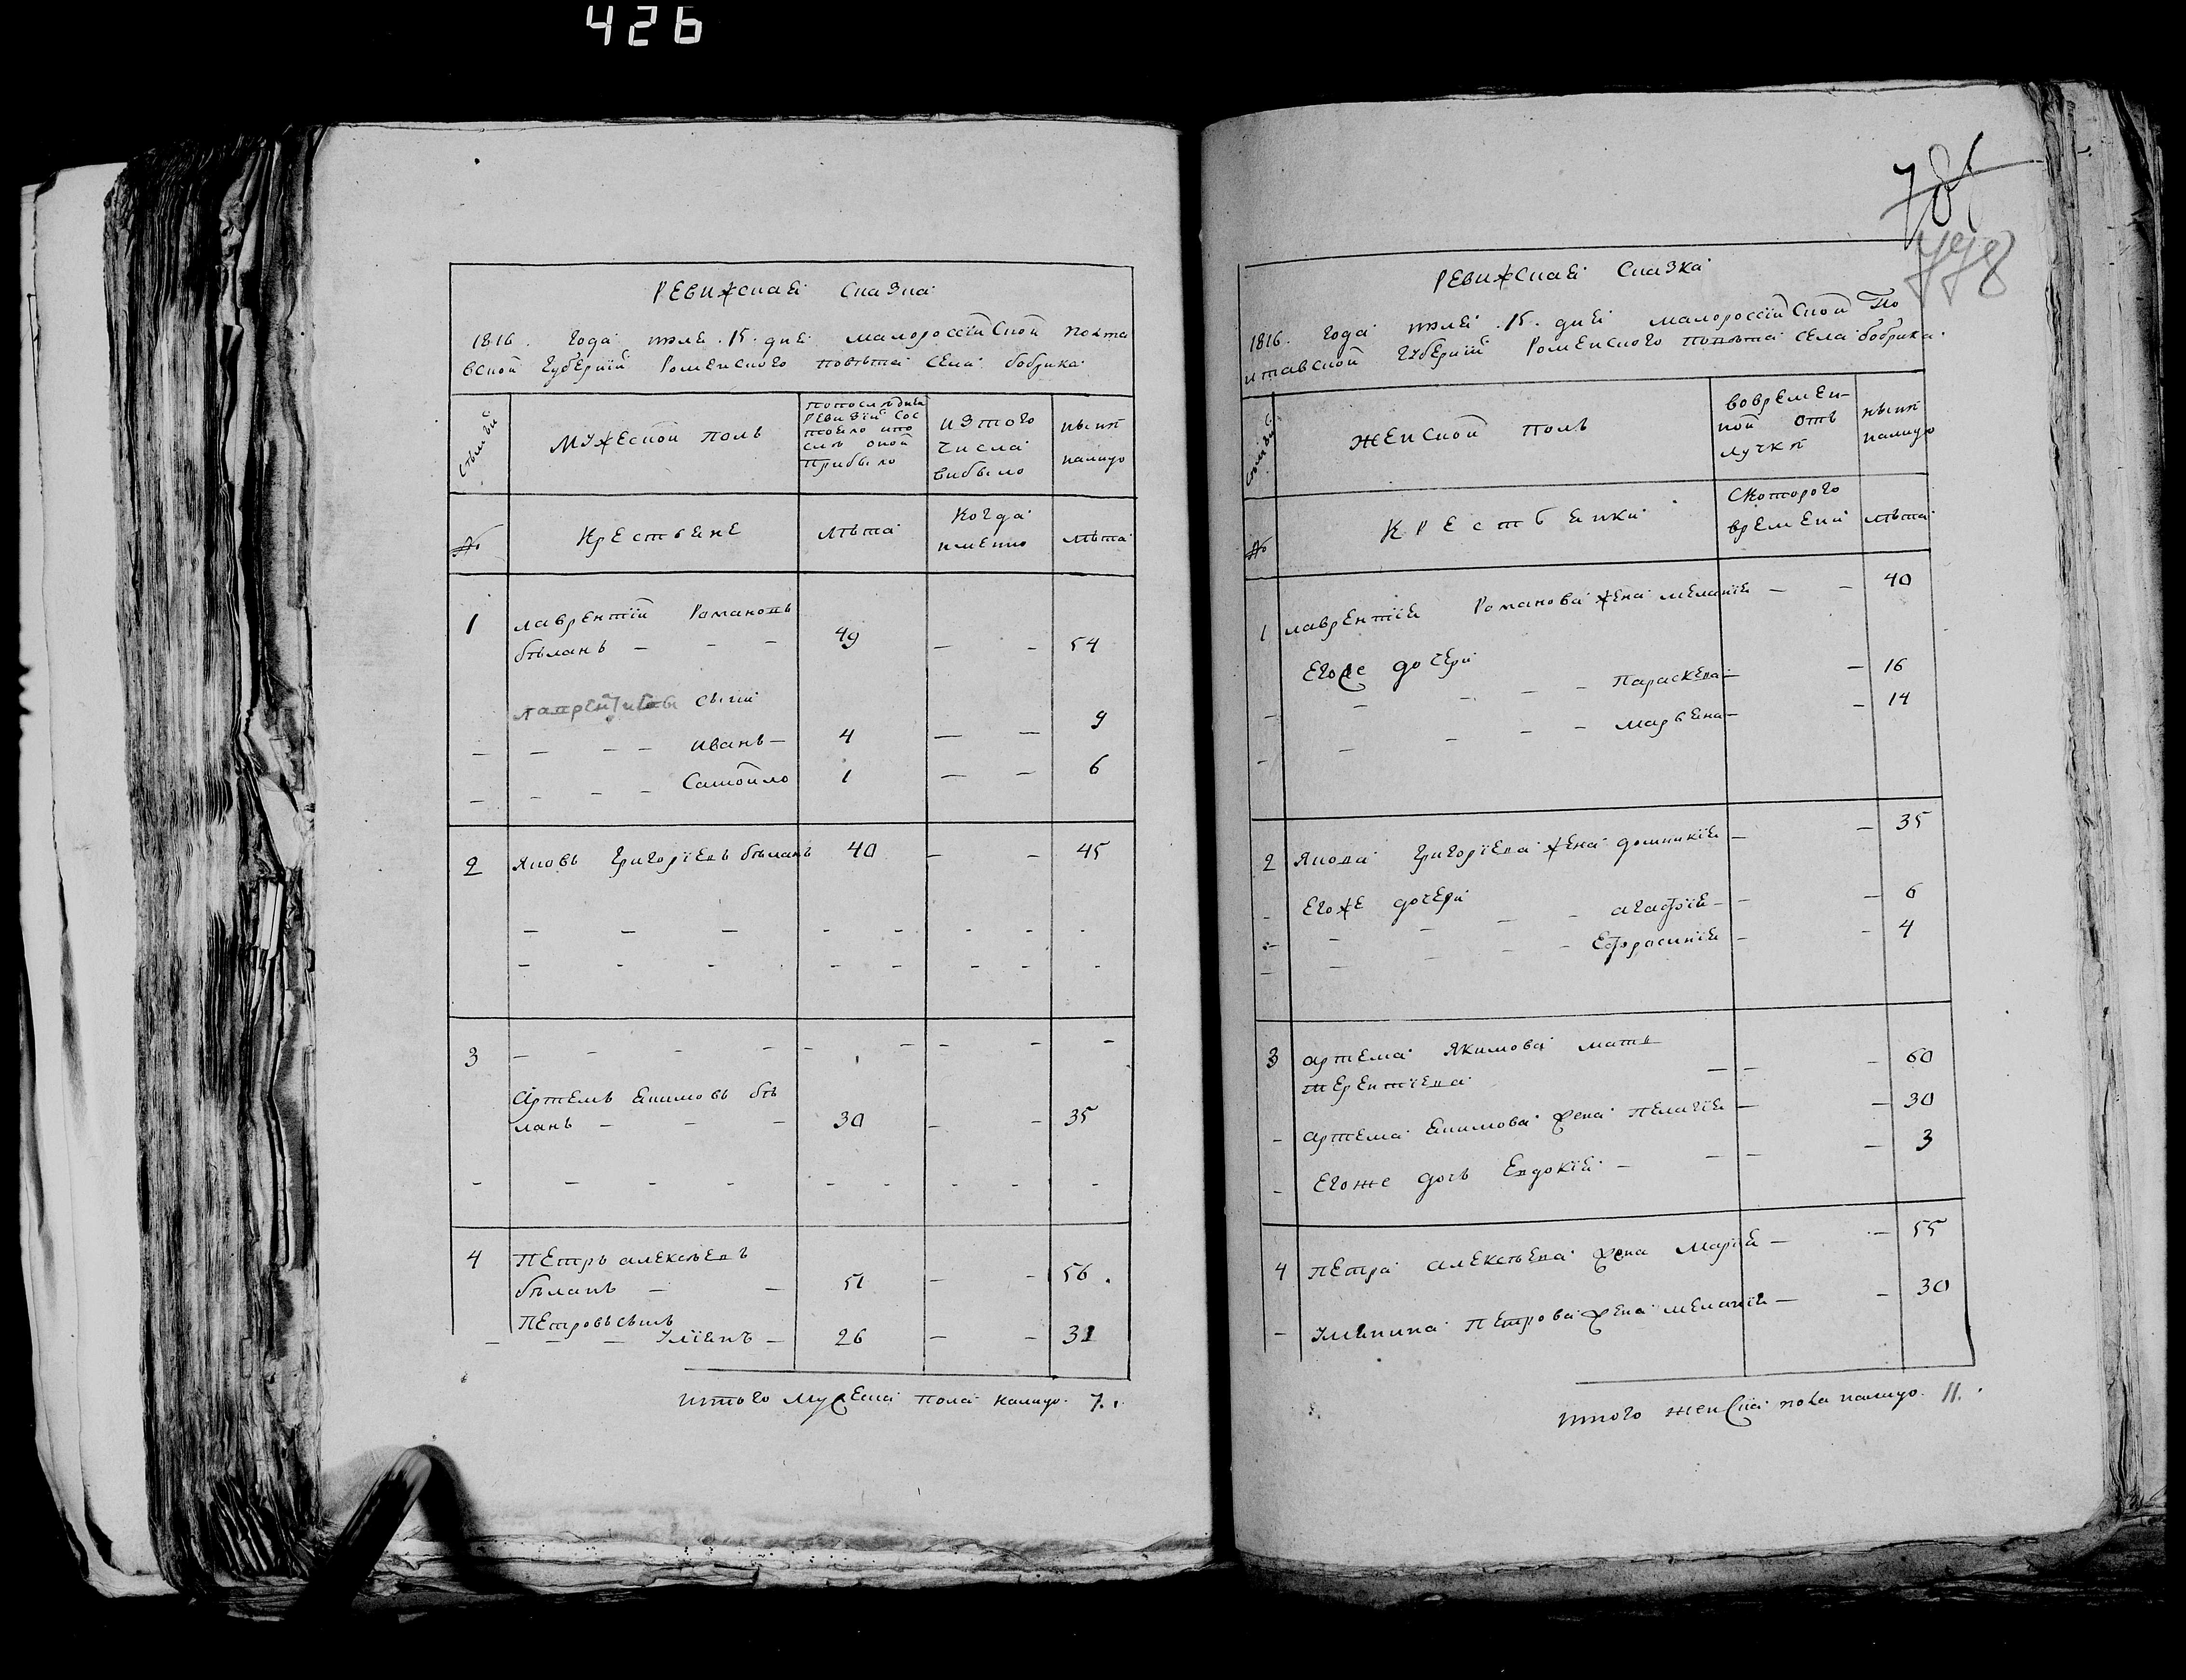 426
РЕВИЖСКАЯ СКАЗКА
1816. Года июля .15. дня Малороссійской Полта
вской Губерніи Роменского повѣта села бобрика
Сѣмьи
Мужеской полъ
По последней ревизіи состояло и после оной прибыло
Изтого числа выбыло
Нынѣ налицо
№
Крестьяне
Лѣта
Когда имянно
Лѣта
1 Лаврентій Романовъ
бѣланъ – – – 49 – – 54
Лаврентиевы сыны
– – – – Иванъ – 4 – – 9
– – – – Самойло 1 – – 6
2 Яковъ Григоріевъ бѣланъ 40 – – 45
3
Артемъ Якимовъ бѣ
ланъ – – – 30 – – 35
4 Петръ Алексѣевъ
бѣланъ – – 51 – – 56.
Петровъ сынъ
– – – Уліянъ – 26 – – 31
Итого мужеска пола налицо. 7.
785
778
РЕВИЖСКАЯ СКАЗКА
1816. Года июля .15. дня Малороссійской По
лтавской Губерніи Роменского повѣта села бобрика.
Сѣмьи
Женской полъ
Во временной отлучкѣ
Нынѣ налицо
№
Крестьянки
Скоторого времени
Лѣта
1 Лаврентія Романова жена Меланія – – 40
Егоже дочери
– – – – – Параскева – – 16
– – – – Марьяна – – 14
2 Якова Григоріева жена Домникія – – 35
– Егоже дочери
– – – – – Агафія – – – 6
– – – – – Ефросинія – – 4
3 Артема Якимова мать
Терентіева – – – 60
– Артема Якимова жена Пелагія – – 30
– Егоже дочь Евдокія – – – – 3
4 Петра Алексѣева жена Марія – – 55
– Уляяна Петрова жена Меланія – – 30
Итого женска пола налицо. 11.